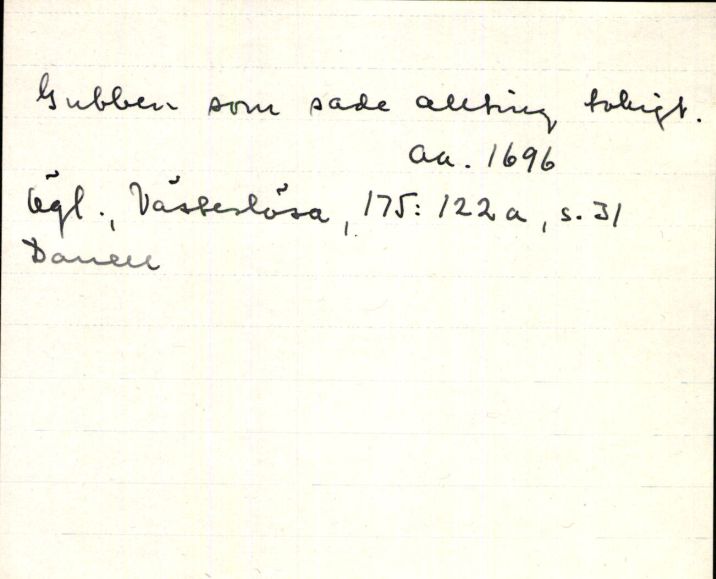 Gubben som sade allting tokigt.
Aa. 1696
Ögl., Västerlösa, 175: 122 a, s. 31
Danell